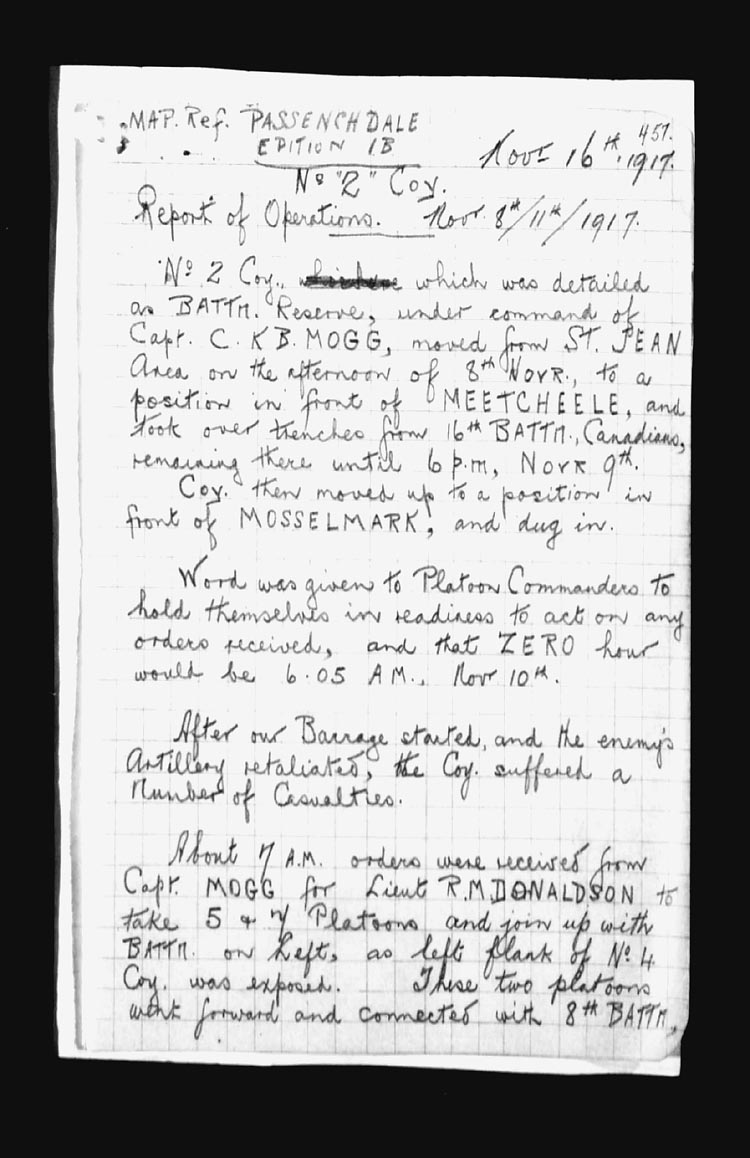 MAP. Ref. PASSENCHDALE
EDITION 1B
457.
Novr 16th. 1917.
No "2" Coy.
Report of Operations. Novr 8th/11th/1917.
No 2 Coy., which was detailed
as BATTN. Reserve, under command of
Capt. C. K B. MOGG, moved from ST. JEAN
Area on the afternoon of 8th NOVR., to a
position in front of MEETCHEELE, and
took over trenches from 16th BATTN., Canadians,
remaining there until 6 p.m, NOVR 9th.
Coy. then moved up to a position in
front of MOSSELMARK, and dug in.
Word was given to Platoon Commanders to
hold themselves in readiness to act on any
orders received, and that ZERO hour
would be 6.05 AM., Novr 10th.
After our Barrage started, and the enemy's
Artillery retaliated, the Coy. suffered a
Number of Casualties.
About 7 A.M. orders were received from
Capt. MOGG for Lieut R.M.DONALDSON to
take 5 & 7 Platoons and join up with
BATTN. on Left, as left flank of No 4
Coy. was exposed. These two platoons
went forward and connected with 8th BATTN,